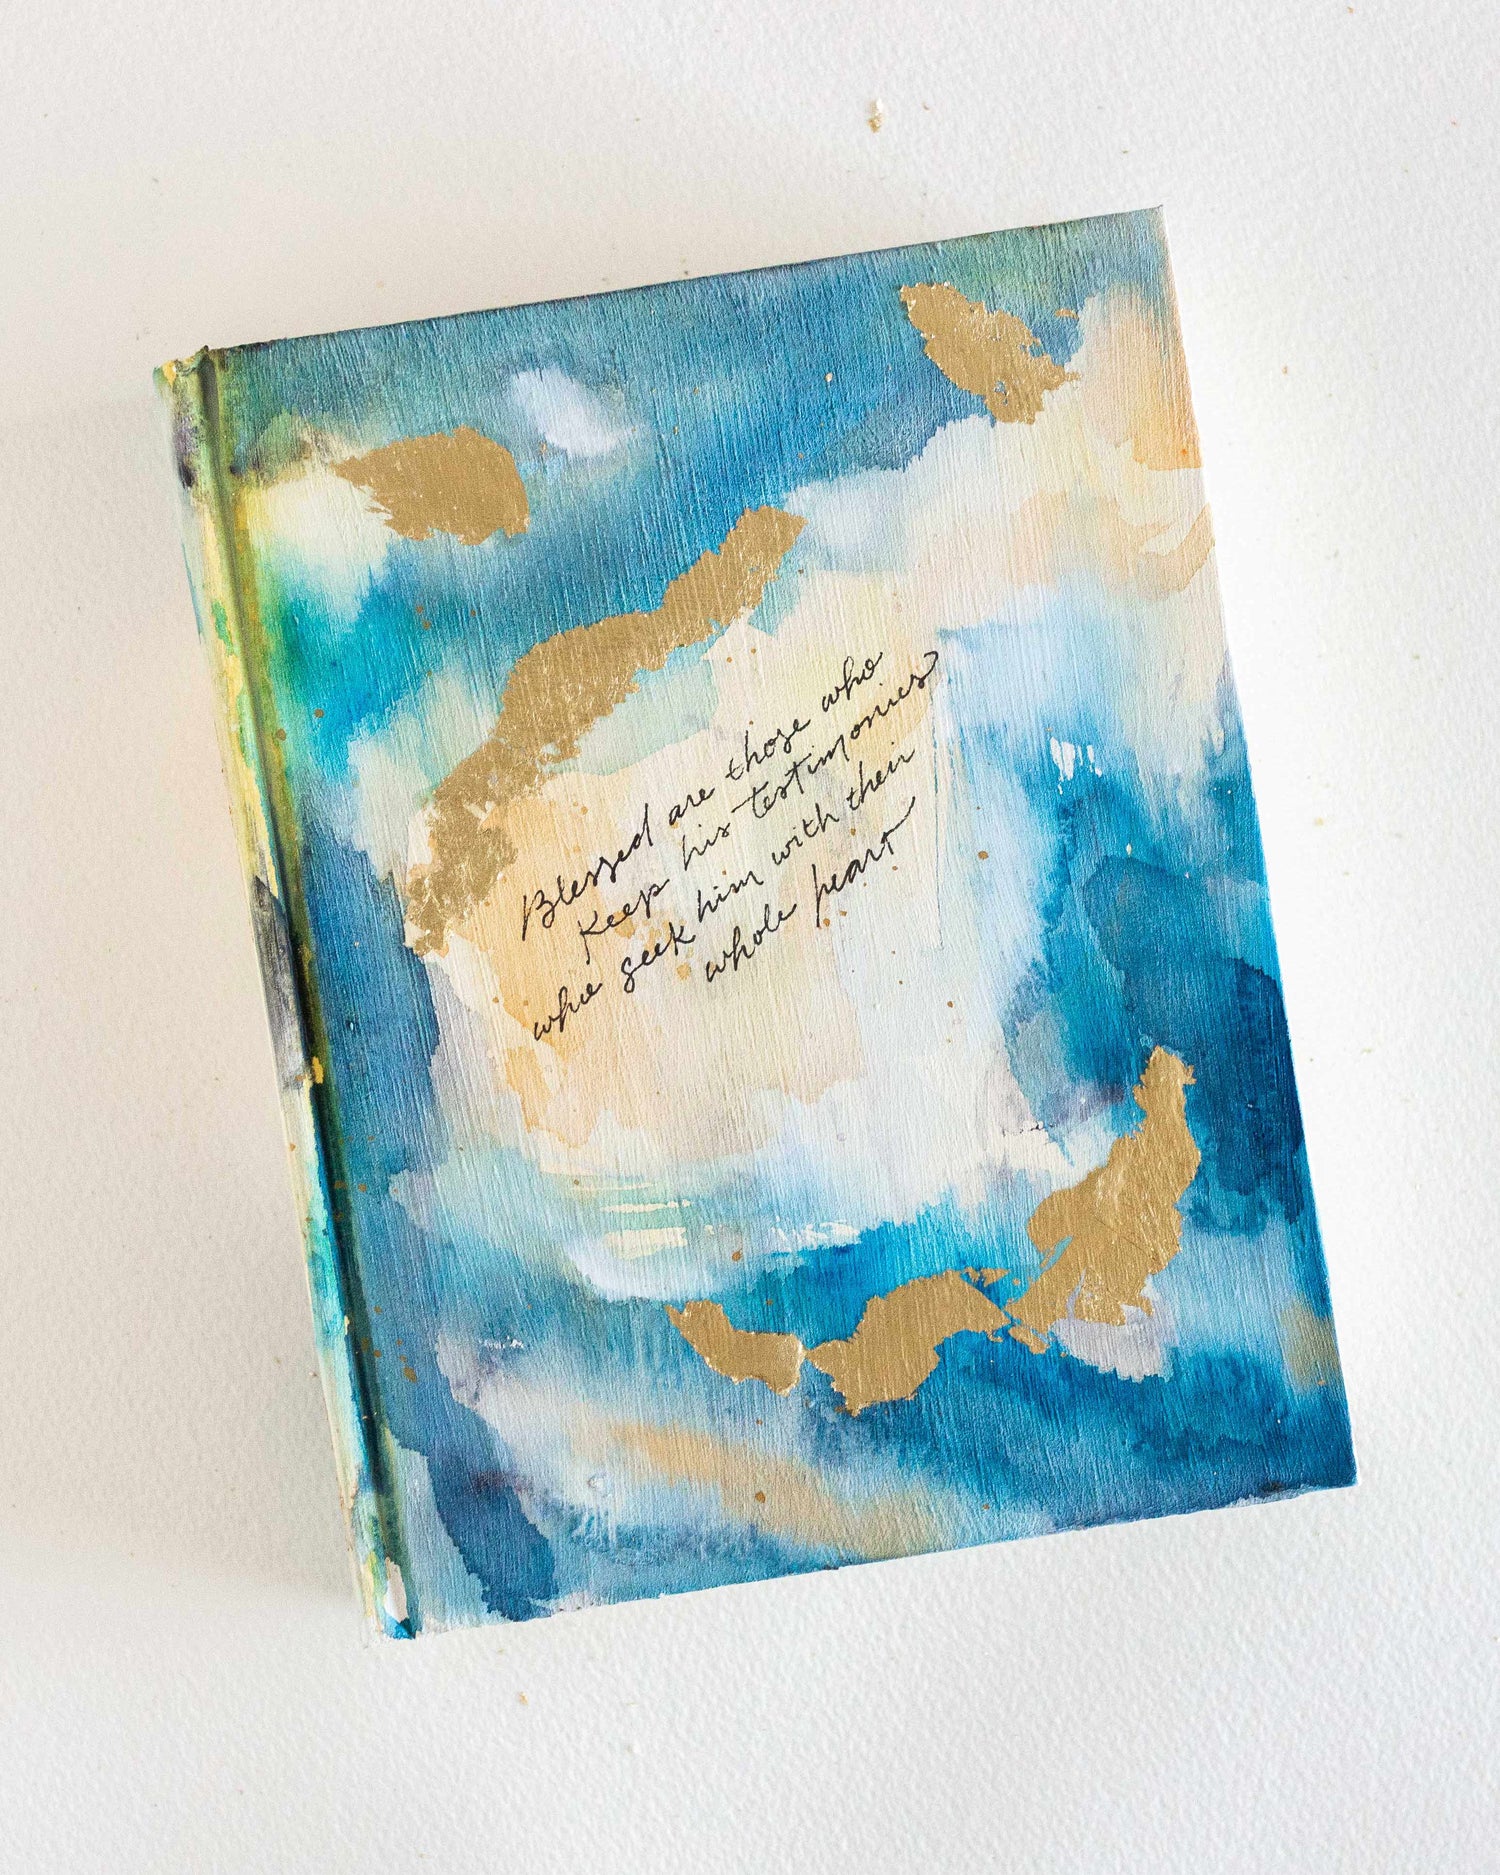 Blessed are those who
Keep his testimonies
who seek him with their
whole heart